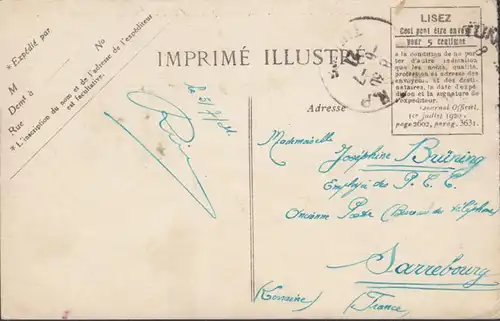 * Expédié par
M
Demt à
No
Rue
* L'inscription du nom et de l'adresse de l'expéditeur
est facultative.
IMPRIMÉ ILLUSTRÉ
LISEZ
Ceci peut être envoyé
pour 5 centimes
à la condition de ne por-
ter d'autre indication
que les noms, qualité,
profession et adresse des
envoyeurs et des desti-
nataires, la date d'expé-
dition et la signature de
l'expéditeur.
Journal Officiel,
1er juillet 1920.
page 2602, parag. 3631.
R.P
Adresse
Mademoiselle
Joséphine Brüring
Employée des P. E. E
Ancienne Poste (Bureau des téléphones
Sarrebourg
(Lorraine) (France)